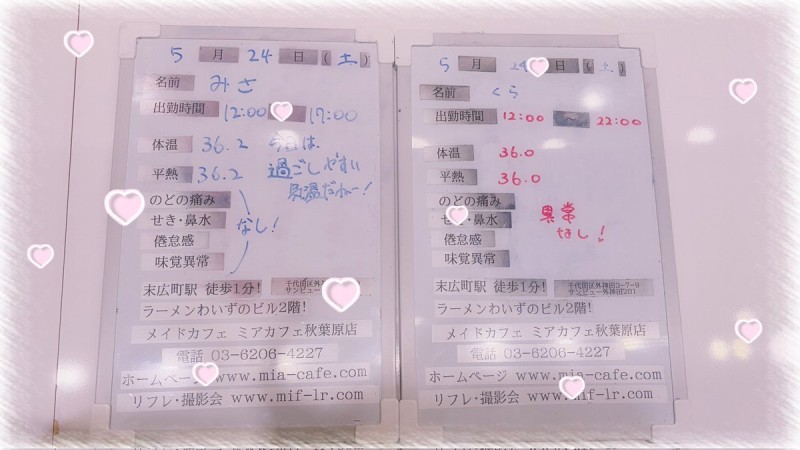 5月24日(土)
名前 みさ
出勤時間 12:00 17:00
体温 36.2 今日は、
平熱 36.2 過ごしやすい
気温だねー!
のどの痛み
せき・鼻水 なし!
倦怠感
味覚異常
末広町駅 徒歩1分! 千代田区外
サンビュー
ラーメンわいずのビル2階!
メイドカフェ ミアカフェ秋葉原店
電話 03-6206-4227
ホームページ www.mia-cafe.com
リフレ・撮影会 www.mif-lr.com
5月24日(土)
名前 くら
出勤時間 12:00 22:00
体温 36.0
平熱 36.0
のどの痛み
せき・鼻水 異常
なし!
倦怠感
味覚異常
末広町駅 徒歩1分! 千代田区外神田3-7-9
サンビュー外神田201
ラーメンわいずのビル2階!
メイドカフェ ミアカフェ秋葉原店
電話 03-6206-4227
ホームページ www.mia-cafe.com
リフレ・撮影会 www.mif-lr.com